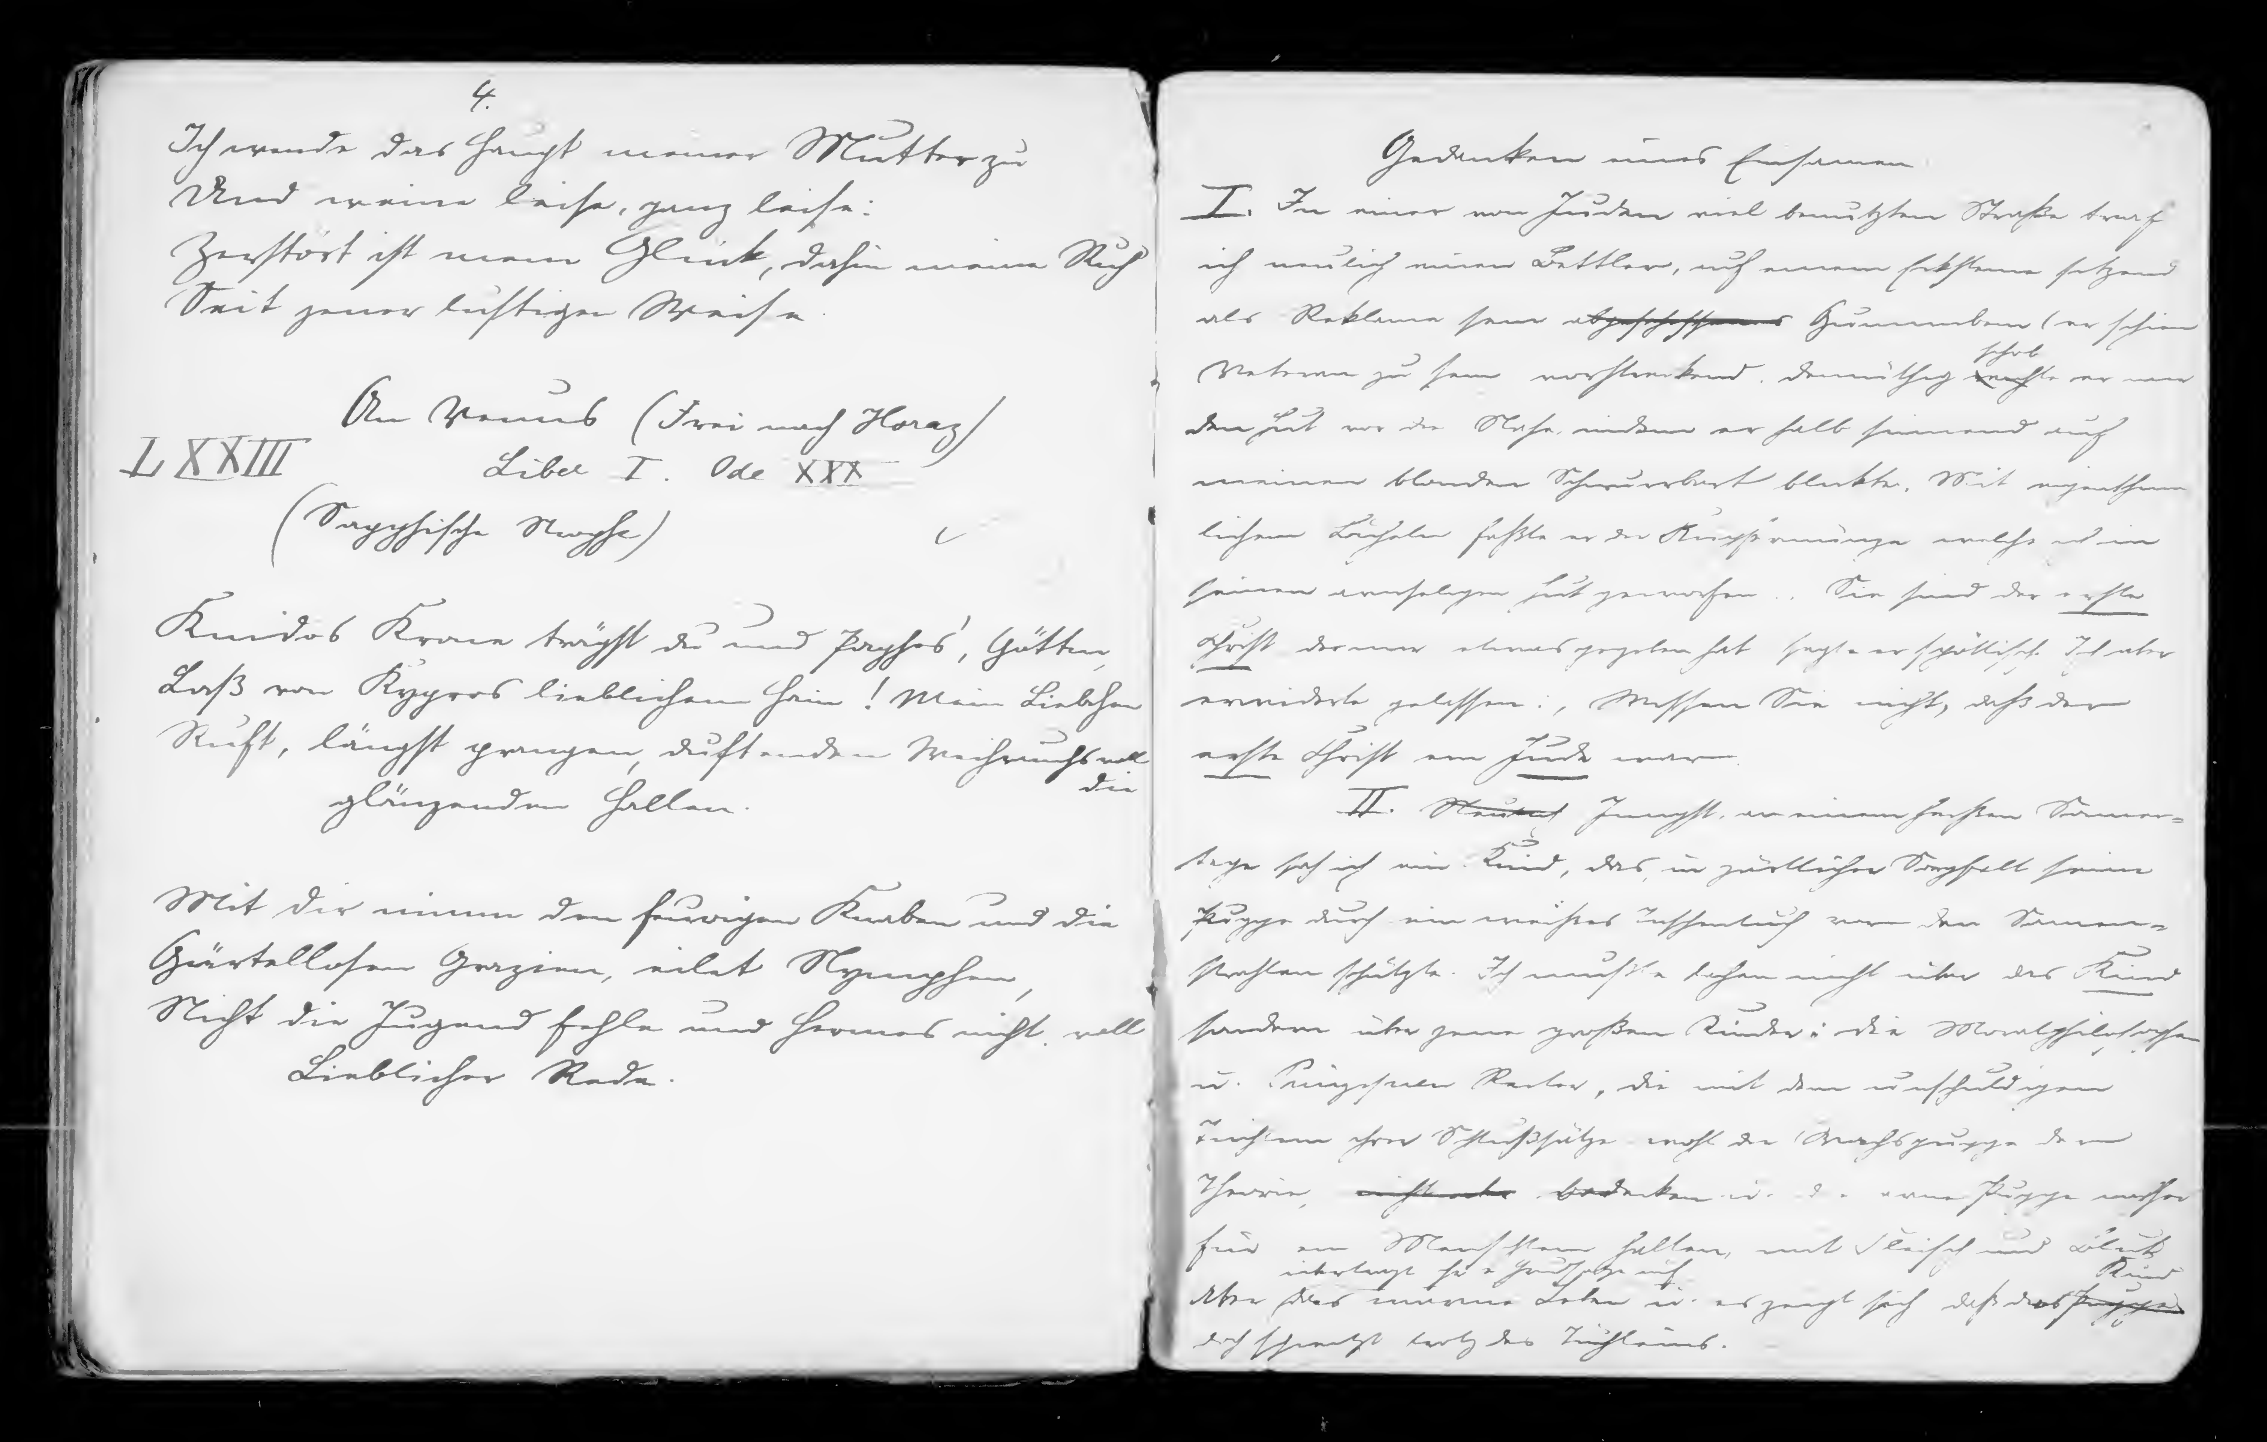 4.
Ich wende das Haupt meiner Mutter zu
Und weine leise, ganz leise:
Zerstört ist mein Glück, dahin meine Ruh
Seit jener lustigen Weise.
An Venus (Frei nach Horaz)
LXXIII
Liber I. Ode XXX
(Sapphische Strophe)
Knidos Krone trägst du und Paphos', Göttin,
Laß von Kypros lieblichem Hain! Mein Liebchen
Ruft, längst prangen, duftenden Weihrauchs voll
die
glänzenden Hallen.
Mit dir nimm den feurigen Knaben und die
Gürtellosen Grazien, eilet Nymphen,
Nicht die Jugend fehle und Hermes nicht, voll
Lieblicher Rede.
Gedanken eines Einsamen
I. In einer von Juden viel benutzten Straße traf
ich neulich einen Bettler, auf einem Eckstein sitzend
als Reklame sein Gummibein (er schien
Veteran zu sein vorstreckend. Demüthig
schob
er mir
den Hut vor die Nase, indem er halb sinnend auf
meinen blonden Schnurrbart blickte. Mit eigenthüm
lichem Lächeln faßte er die Kupfermünze welche ich in
seinen armseligen Hut geworfen. Sie sind der erste
Christ der mir etwas gegeben hat sagte er spöttisch. Ich aber
erwiderte gelassen: Wissen Sie nicht, daß der
erste Christ ein Jude war
II. Neulich Jüngst an einem heißen Sommer-
tage sah ich ein Kind, das in zärtlicher Sorgfalt seine
Puppe durch ein weißes Taschentuch vor den Sonnen-
strahlen schützte. Ich mußte lachen nicht über das Kind
sondern über jene großen Kinder: die Moralphilosophen
u. die mit dem unschuldigen
Tüchlein ihrer Schlußsätze wohl die Wachspuppe der
Theorie, bedecken u. die arme Puppe
für ein Menschlein halten, mit Fleisch und Blut,
Aber das warme Leben u. es zeigt sich daß das
Kind
doch schwitzt trotz des Tüchleins.